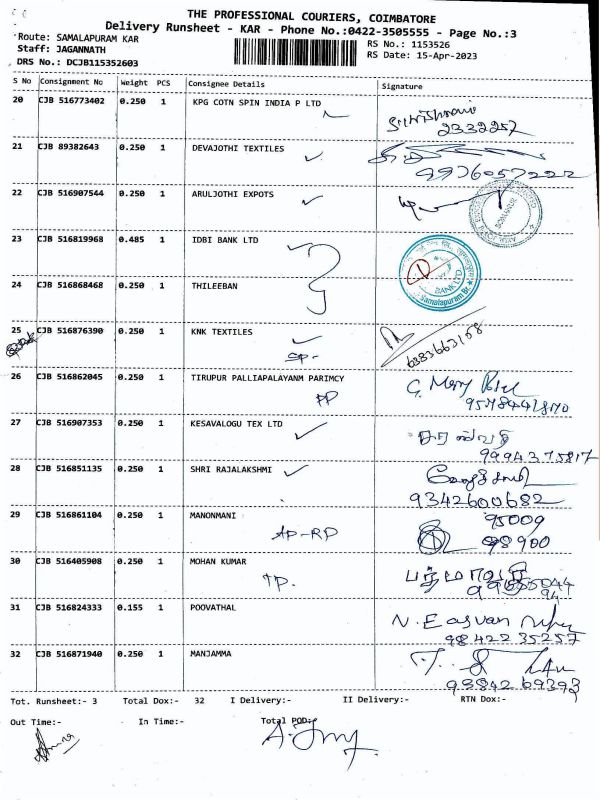 THE PROFESSIONAL COURIERS, COIMBATORE
Delivery Runsheet - KAR - Phone No.:0422-3505555 - Page No.:3
Route: SAMALAPURAM KAR
RS No.: 1153526
Staff: JAGANNATH
RS Date: 15-Apr-2023
DRS No.: DCJB115352603
S No Consignment No Weight PCS Consignee Details Signature
20 CJB 516773402 0.250 1 KPG COTN SPIN INDIA P LTD
2332257
21 CJB 89382643 0.250 1 DEVAJOTHI TEXTILES
9976057222
22 CJB 516907544 0.250 1 ARULJOTHI EXPOTS
23 CJB 516819968 0.485 1 IDBI BANK LTD
BANK LTD
Samalapuram Br.
24 CJB 516868468 0.250 1 THILEEBAN
25 CJB 516876390 0.250 1 KNK TEXTILES
6383663158
26 CJB 516862045 0.250 1 TIRUPUR PALLIAPALAYANM PARIMCY
27 CJB 516907353 0.250 1 KESAVALOGU TEX LTD
சரஸ்வதி
9994375817
28 CJB 516851135 0.250 1 SHRI RAJALAKSHMI
9342600682
29 CJB 516861104 0.250 1 MANONMANI
AP-RP
95009
98900
30 CJB 516405908 0.250 1 MOHAN KUMAR
31 CJB 516824333 0.155 1 POOVATHAL
9842235257
32 CJB 516871940 0.250 1 MANJAMMA
9384269393
Tot. Runsheet:- 3 Total Dox:- 32 I Delivery:- II Delivery:- RTN Dox:-
Out Time:- In Time:- Total POD:-